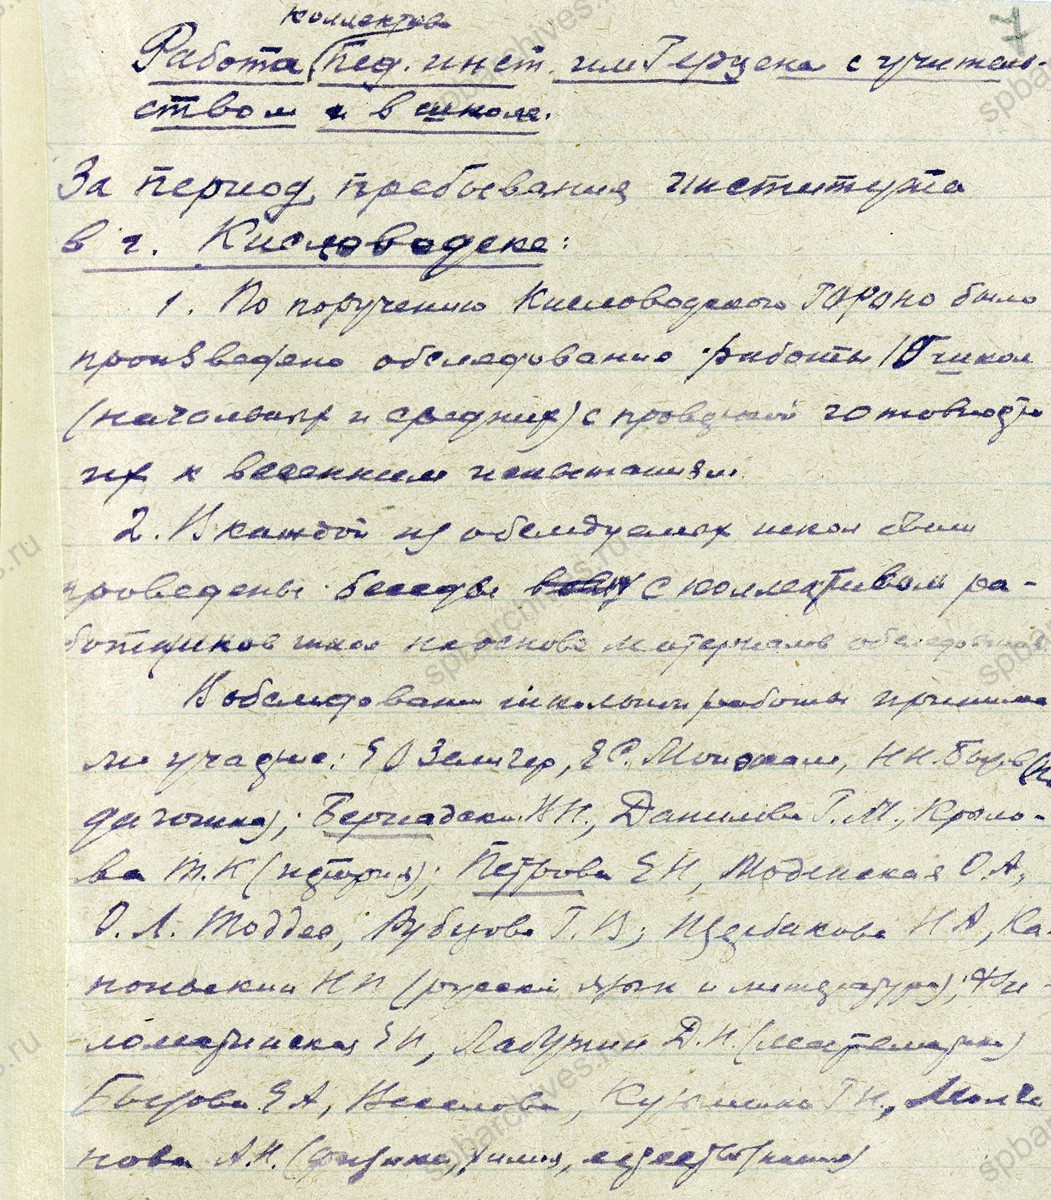 7
коллектива
Работа Пед. инст. им Герцена с учитель-
ством и в школе.
За период пребывания института
в г. Кисловодске:
1. По поручению Кисловодского ГорОНО было
произведено обследование работы 10 школ
(начальных и средних) с проверкой готовности
их к весенним испытаниям.
2. В каждой из обследуемых школ были
проведены беседы с коллективом ра-
ботников школ на основе материалов обследования
В обследовании школьной работы принима
ли участие:
дагогика); Бернадский В.Н., Данилова Г.М., Крыло-
ва Т.К (история); Петрова Е Н, О.А,
О. Л. Рубцова Г.В; Щербакова Н А, Ка-
Н П (русский язык и литература); Фи-
ломатинская Е Н, Д.И. (математика)
Е А, Веселова, Кузьмина
нова А.Н. (физика, химия, естествознание)
spbarchives.ru